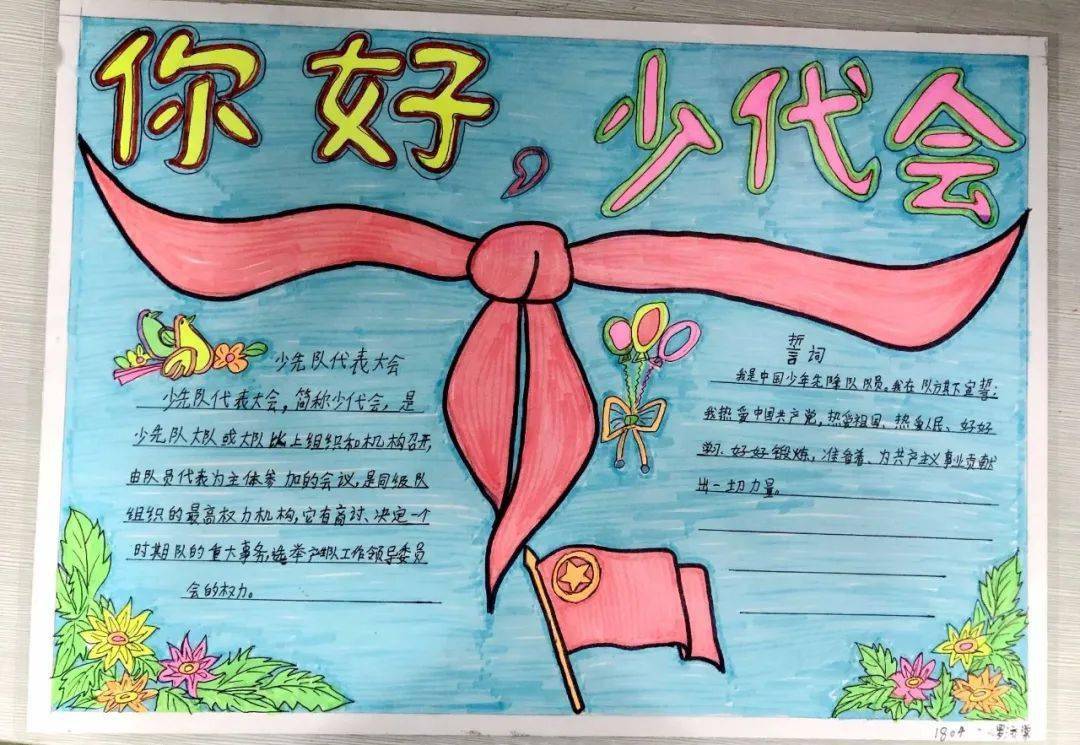 你好,少代会
少先队代表大会
少先队代表大会,简称少代会,是
少先队大队或大队以上组织和机构召开,
由队员代表为主体参加的会议,是同级队
组织的最高权力机构,它有商讨、决定一个
时期队的重大事务,选举产生队工作领导委员
会的权力。
誓词
我是中国少年先隆队队员。我在队旗下宣誓:
我热爱中国共产党,热爱祖国、热爱人民、好好
学习、好好锻炼,准备着、为共产主义事业贡献
出一切力量。
1804